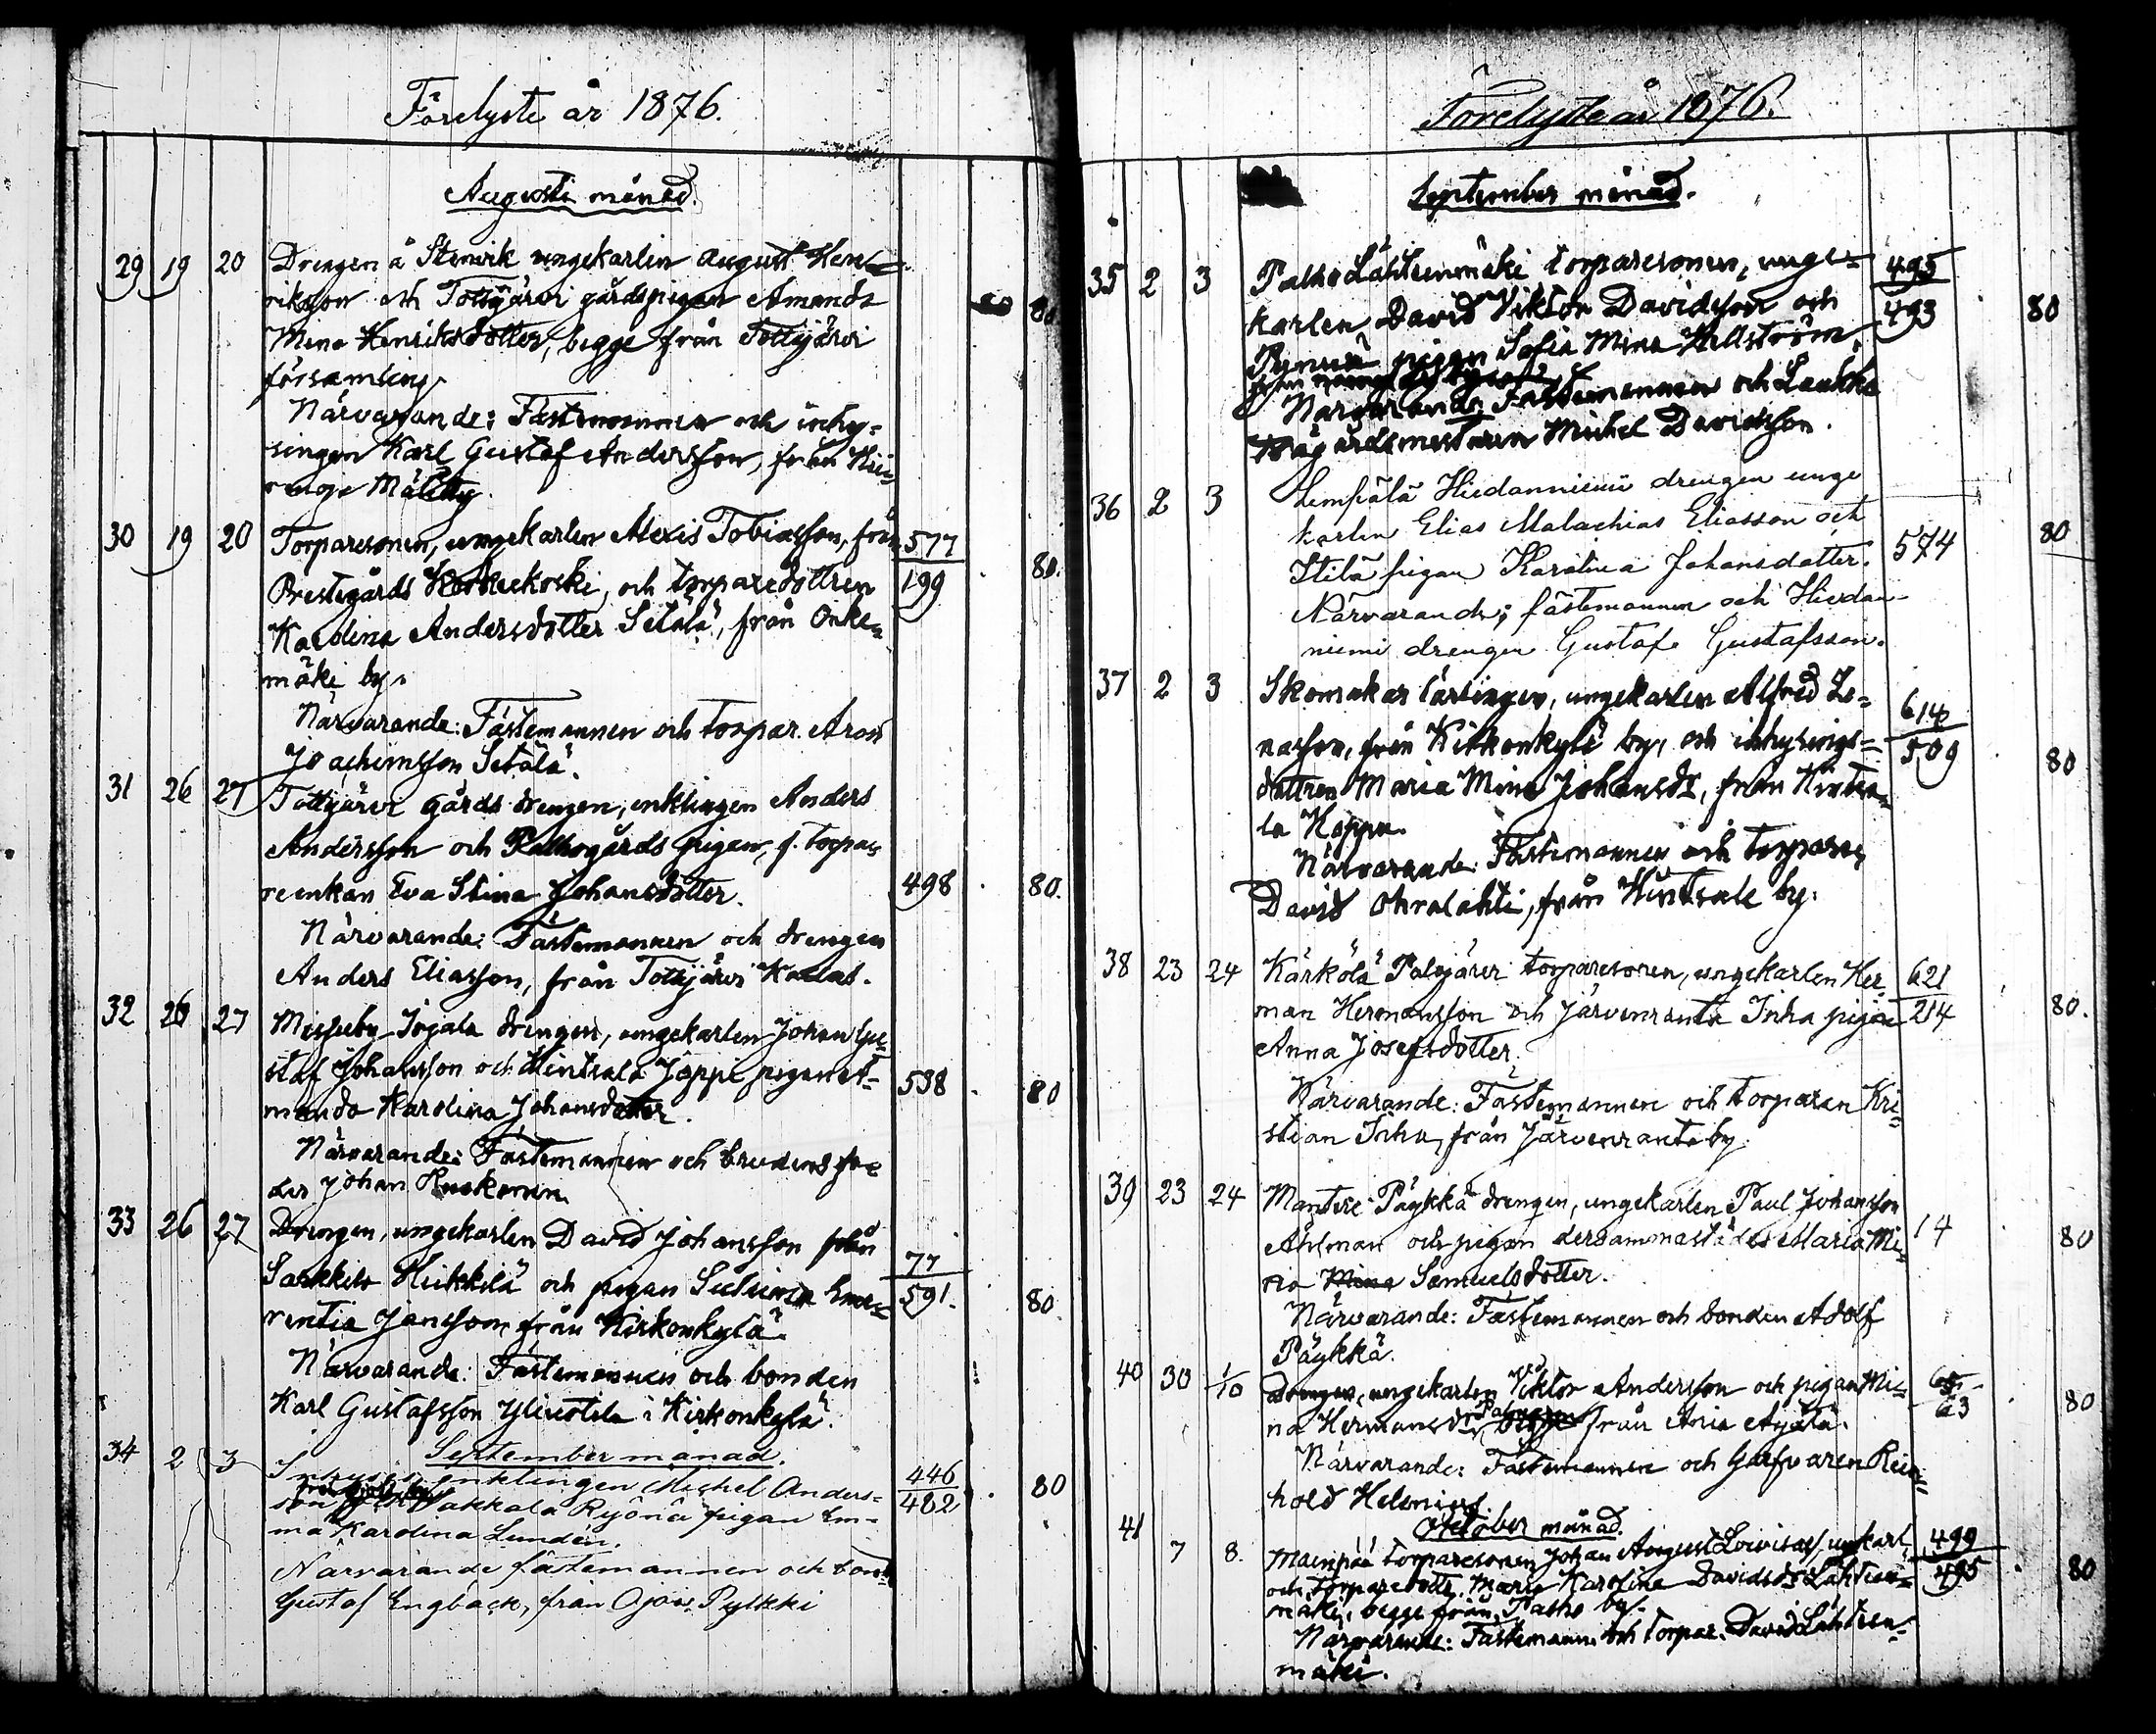 Förelyste år 1876.
Augusti månad.
29 19 20 Drengen å Stenvik ungekarlen August Hen-
riksson och Tottijärvi gårdspigan Amanda
Mina Henriksdotter, begge från Tottijärvi 80
församling.
Närvarande: Fästemannen och inhy-
singen Karl Gustaf Andersson, från
30 19 20 Torparesonen, ungekarlen Alexis Tobiasson, från 577
Prestegårds Korkeekoski, och torparedottren 199 80.
Karolina Andersdotter Setälä, från Onke-
mäki by.
Närvarande: Fästemannen och torpar. Aron
Joachimsson Setälä.
31 26 27 Tottijärvi gårds drengen, enklingen Anders
Andersson och Palhogårds pigan, f. torpa-
reenkan Eva Stina Johansdotter. 498 80.
Närvarande: Fästemannen och drengen
Anders Eliasson, från Tottijärvi
32 26 27 Missuby Jojala drengen, ungekarlen Johan Gu-
staf Johansson och Hintsala Joppi pigan A- 538 80
manda Karolina Johansdotter.
Närvarande: Fästemannen och brudens fa-
der Johan
33 26 27 Drengen, ungekarlen David Johansson från 77
Sarkkila Heikkilä och pigan Eme- 591. 80
rentia Jansson från Kirkonkylä.
Närvarande: Fästemannen och bonden
Karl Gustafsson Yliuotila i Kirkonkylä.
September månad.
34 2 3 enklingen Michel Anders- 446
son Wakkala Ryönä pigan Em- 482 80
ma Karolina Lundén.
Närvarande fästemannen och bond.
Gustaf Engbäck, från Ojois Pylkki
Förelyste år 1876.
September månad.
35 2 3 Palho Lahtsenmäki torparesonen, unge- 495
karlen David Viktor Davidsson och 493 80
pigan Sofia Mina Hellström,
Närvarande: Fästemannen och Laukko
trägårdsmästaren Michel Davidsson.
36 2 3 Lempälä Hiedanniemi drengen unge
karlen Elias Malachias Eliasson och 80
pigan Karolina Johansdotter. 574
Närvarande; fästemannen och Hiedan-
niemi drengen Gustaf Gustafsson.
37 2 3 Skomakar lärlingen, ungekarlen Alfred Le- 614
nasson, från Kirkonkylä by, och inhysings- 509 80
dottren Maria Mina Johansdr, från Hintsa-
la Koppa.
Närvarande: Fästemannen och torparen
David Ohralahti, från Hintsala by.
38 23 24 Kärkölä Palojärvi torparesonen, ungekarlen Her- 621
man Hermansson och Järvenranta Inha pigan 214 80.
Anna Josefsdotter.
Närvarande: Fästemannen och torparen Kri-
stian Inha, från Järvenranta by.
39 23 24 Mantere Päykkä drengen, ungekarlen Paul Johansson
Ahlman och pigan dersammastädes Maria Mi- 14 80
na Mina Samuelsdotter.
Närvarande: Fästemannen och bonden Adolf
Päykkä.
40 30 1/10 Drengen, ungekarlen Viktor Andersson och pigan Mi-
na Hermansdr, begge från Ania Äijälä. 63 80
Närvarande: Fästemannen och Garfvaren Rein-
hold Helenius.
October månad.
41 7 8. Mäenpää torparesonen Johan August Lovisas., ungkarl. 499
och torparedottr. Maria Karolina Davidsdr Lahtsen- 495 80
mäki, begge från Palho by.
Närvarande: Fästemann. och torpar. David Lahtsen-
mäki.